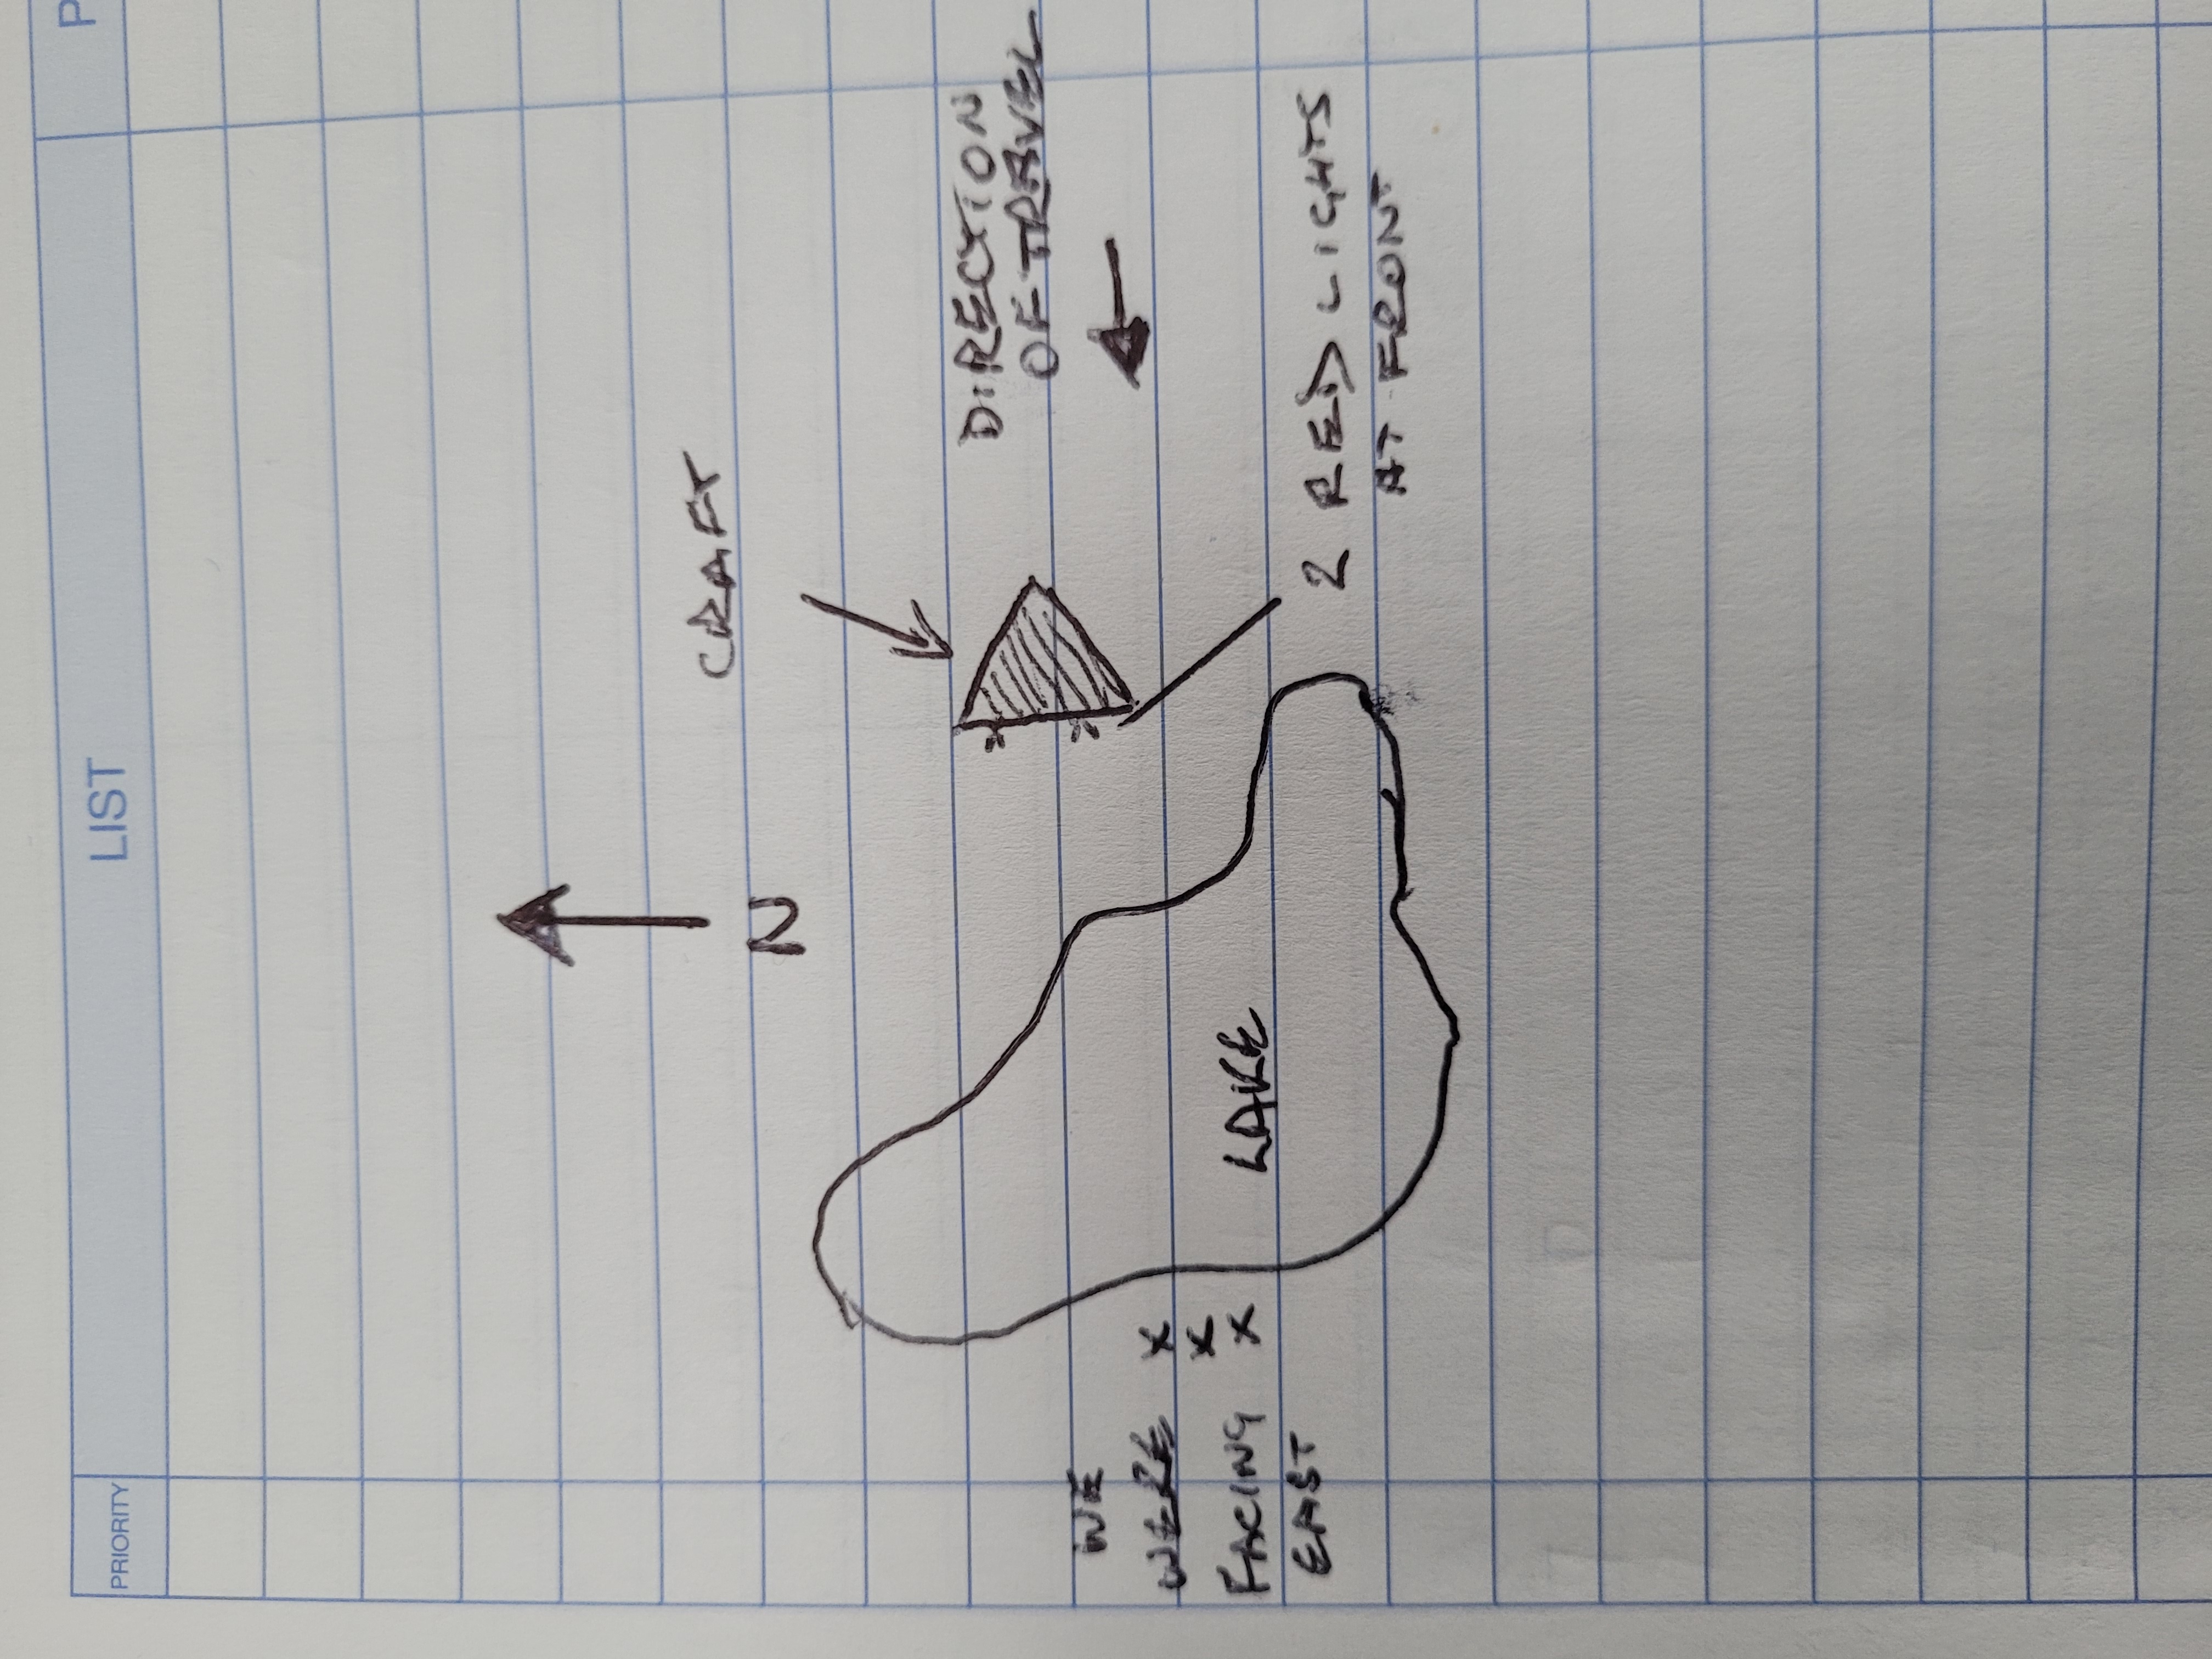 PRIORITY
LIST
P
N
CRAFT
DIRECTION
OF TRAVEL
WE
WERE X
X
FACING X
EAST
LAKE
2 RED LIGHTS
AT FRONT